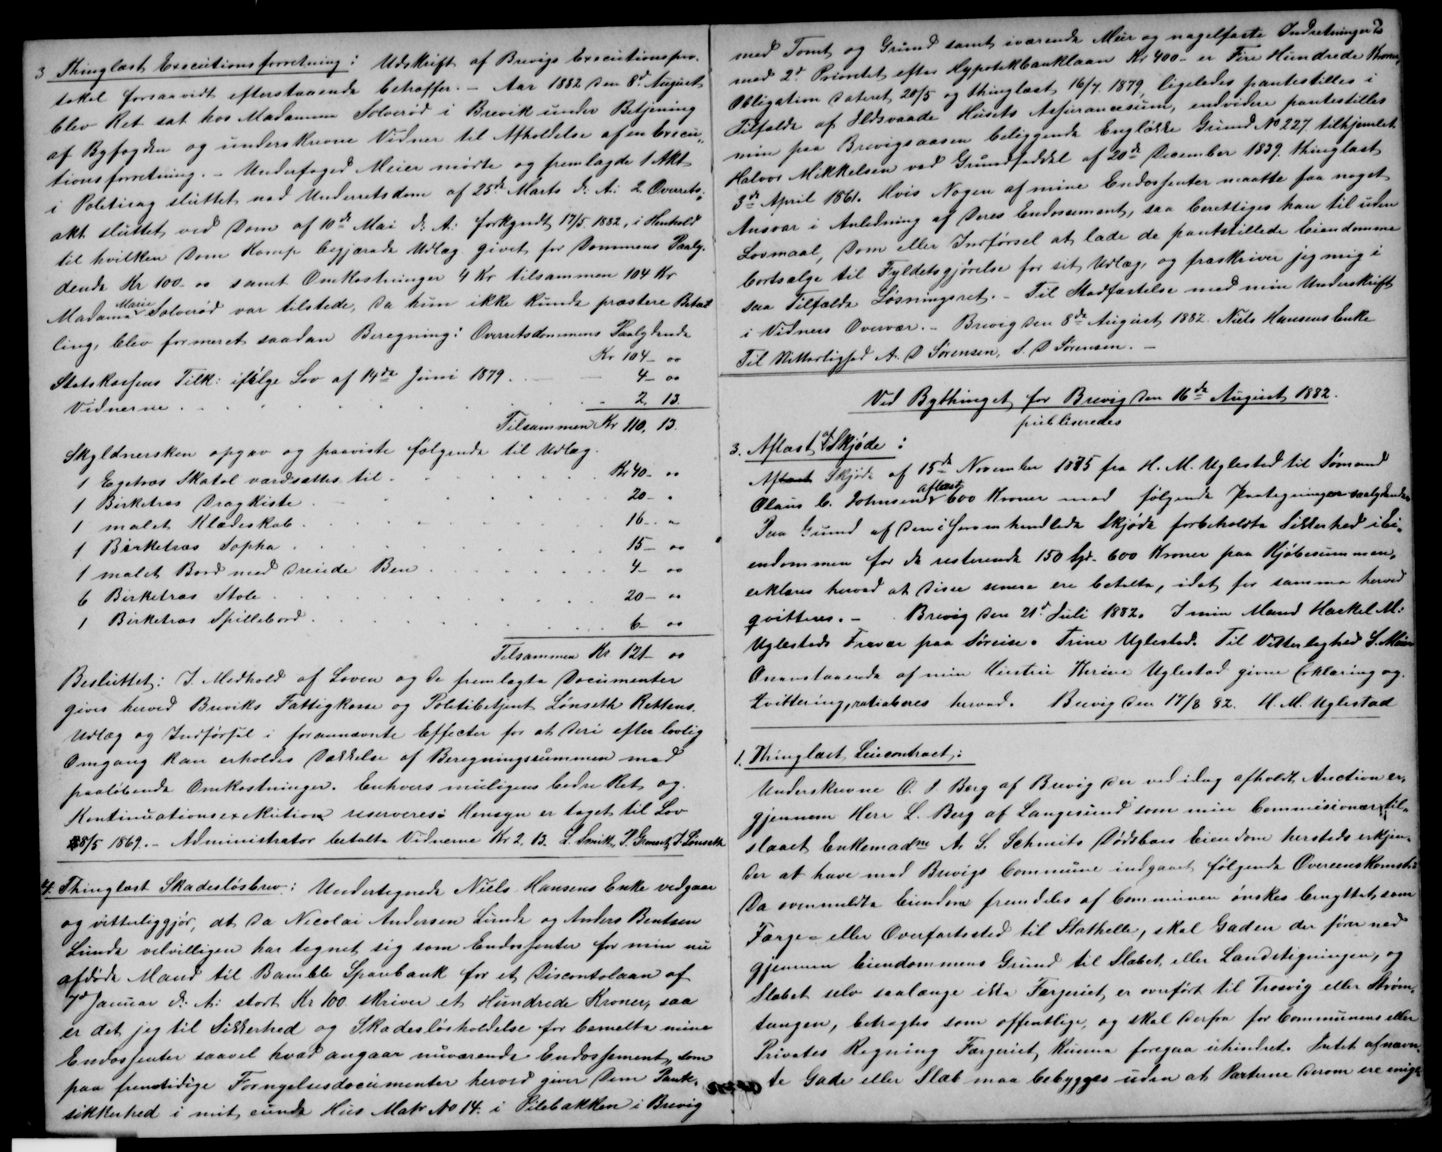 3 Thinglæst Executionsforretning: Udskrift af Brevigs Executionspro-
tokol forsaavidt efterstaaende betræffer. - Aar 1882 den 8de August
blev Ret sat hos Madamme Solverød i Brevik under Betjening
af Byfogden og underskrevne Vidner til Afholdelse af en Execu-
tionsforretning. - Underfoged Meier mødte og fremlagde 1 Akt
i Politisag sluttet ved Underretsdom af 25de Marts d: A: 2 Overrets-
akt sluttet ved Dom af 10de Mai d: A: forkyndt 17/5 1882, i Henhold
til hvilken Dom Komp begjærede Udlæg givet for Dommens Paaly-
dende Kr 100 - 00 samt Omkostninger 4 Kr tilsammen 104 Kr
Madame Marie Solverød var tilstede, da hun ikke kunde præstere Betal
ling, blev formeret saadan Beregning: Overretsdommens Paalydende
Kr 104 - 00
Statskassens Tilk: ifølge Lov af 14de Juni 1879 . - - 4 - 00
Vidnerne . . . . . - 2. 13
Tilsammen Kr 110. 13.
Skyldnersken opgav og paaviste følgende til Udlæg.
1 Egetræs Skatol værdsattes til . . . . Kr 40 - 00
1 Birketræs Dragkiste - . . . . 20 - "
1 malet Klædeskab . . . . . 16 - "
1 Birketræs Sopha . . . . . 15 - 00
1 malet Bord med dreiede Ben . . . . . 4 - 00
6 Birketræs Stole . . . . . 20 - 00
1 Birketræs Spillebord . . . . . 6 - 00
Tilsammen Kr 121 - 00
Besluttet: I Medhold af Loven og de fremlagte Documenter
gives herved Breviks Fattigkasse og Politibetjent Lønseth Rettens
Udlæg og Indførsel i forannævnte Effecter for at deri efter lovlig
Omgang kan erholdes Dækkelse af Beregningssummen med
paaløbende Omkostninger. Enhvers muligens bedre Ret og
Kontinuationsexekution reserveres. Hensyn er taget til Lov
/5 1869. - Administrator betalte Vidnerne Kr 2. 13. L. Smith, P. J Lønseth
4. Thinglæst Skadesløsbrev: Undertegnede Niels Hansens Enke vedgaar
og vitterliggjør, at da Nicolai Andersen Lunde og Anders Bentsen
Lunde velvilligen har tegnet sig som Endossenter for min nu
afdøde Mand til Bamble Sparebank for et Discontolaan af
Januar d: A: stort Kr 100 skriver et Hundrede Kroner, saa
er det jeg til Sikkerhed og Skadesløsholdelse for bemeldte mine
Endossenter saavel hvad angaar nuværende Endossement, som
paa fremtidige Fornyelsesdocumenter herved giver dem Pant-
sikkerhed i mit eiende Hus Matr No 14. i Pilebakken i Brevig
2
med Tomt og Grund samt iværende Muur og nagelfaste Indretninger
med 2d Prioritet efter Hypothekbanklaan Kr 400 - er Fire Hundrede Kroner,
Obligation dateret 20/5 og thinglæst 16/7 1879, ligeledes pantestilles i
Tilfælde af Ildsvaade Husets Assurancesum, endvidere pantestilles
min paa Brevigsaasen beliggende Engløkke Grund No 227 tilhjemlet
Halvor Mikkelsen ved Grundseddel af 20de December 1839. thinglæst
3de April 1861. Hvis Nogen af mine Endossenter maatte faa noget
Ansvar i Anledning af deres Endossement, saa berettiges han til uden
Lovmaal, Dom eller Indførsel at lade de pantstillede Eiendomme
bortsælge til Fyldestgjørelse for sit Udlæg, og fraskriver jeg mig i
saa Tilfælde Løsningsret. - Til Stadfæstelse med min Underskrift
i Vidners Overvær. - Brevig den 8de August 1882. Niels Hansens Enke
Til Vitterlighed A. D Sørensen, S. D Sørensen. -
Ved Bythinget for Brevig den 16de August 1882.
publiceredes
3. Aflæst af Skjøde:
Skjøde af 15de November 1875 fra H. M. Uglestad til Sømand
Olaus C. Johnsen aflæst 600 Kroner med følgende Paategninger saalydende
Paa Grund af den i foranhandlede Skjøde forbeholdte Sikkerhed i Ei-
endommen for de resterende 150 Spd. 600 Kroner paa Kjøbesummen,
erklæres herved at disse senere ere betalte, idet for samme herved
qvitteres. - Brevig den 21de Juli 1882. I min Mand Haekel M:
Uglestads Fravær paa Søreise. Trine Uglestad. Til Vitterlighed S. Møller
Ovenstaaende af min Hustru Therine Uglestad givne Erklæring og
Qvittering, ratihaberes herved. Brevig den 17/8 82. H. M. Uglestad
1. Thinglæst Leiecontract:
Underskrevne O. J Berg af Brevig der ved idag afholdt Auction er,
gjennem Herr L. Berg af Langesund som min Commisionær, til-
slaaet Enkemadme A. S. Schmits Dødsbos Eiendom hersteds erkjen-
der at have med Brevigs Commune indgaaet følgende Overenskomst:
Da ovenmeldte Eiendom fremdeles af Communen ønskes benyttet som
Færge- eller Overfartssted til Stathelle, skal Gaden der fører ned
gjennem Eiendommens Grund til Slabet eller Landstigningen, og
Slabet selv saalænge ikke Færgeriet er overført til Trosvig eller Strøm-
tangen, betragtes som offentlige, og skal derfra for Communens eller
Privates Regning Færgeriet kunne foregaa uhindret. Intet af nævn-
te Gade eller Slab maa bebygges uden at Parterne derom ere enige